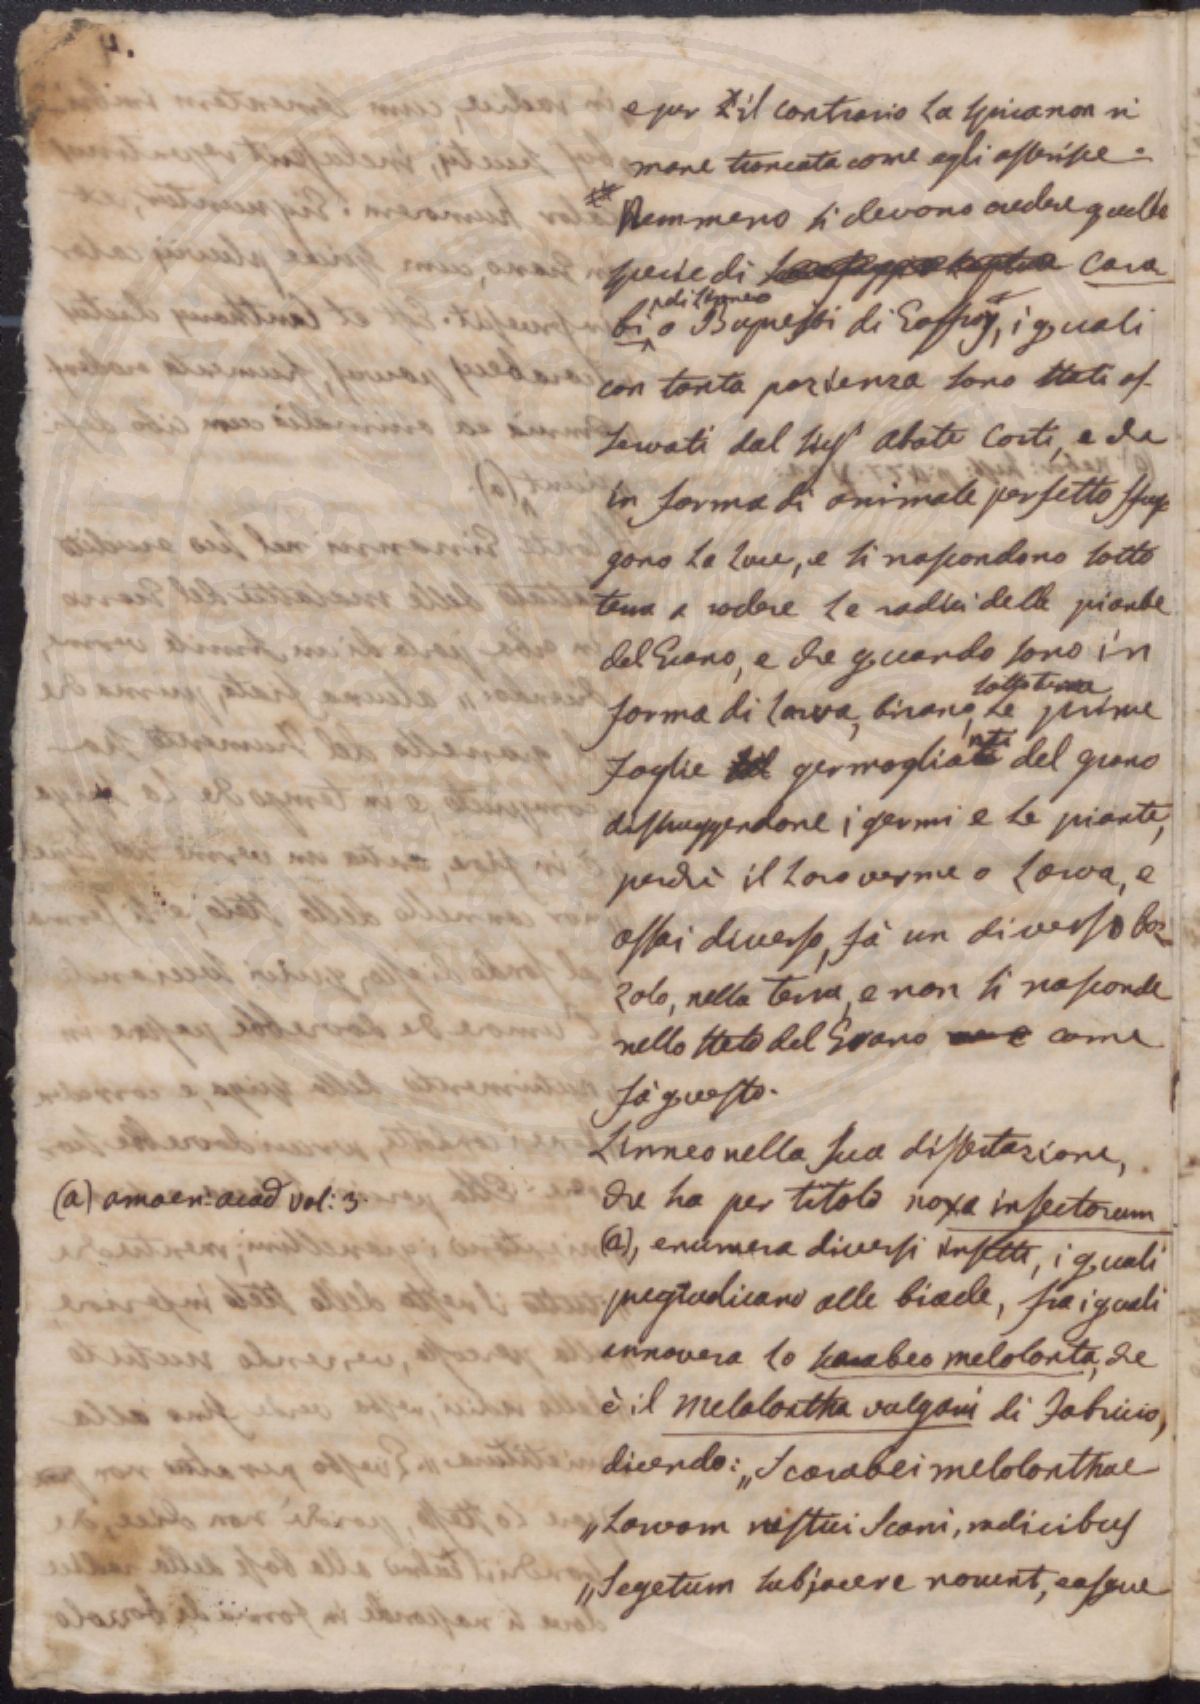 4.
e per il contrario la spica non ri
mane troncata come egli asserisce.
Nemmeno si devono credere quelle
specie di Cara
bi, di Linneo
o Bupresti di Geoffroy, i quali
con tanta pazienza sono stati os-
servati dal Sig.r abate Corti, e che
in forma di animale perfetto sfug
gono la luce, e si nascondono sotto
terra a rodere le radici delle piante
del Grano, e che quando sono in
forma di larva, tirano sotto terra le prime
foglie germoglianti del grano
distruggendone i germi e le piante,
perchè il loro verme o larva, e
assai diverso, fà un diverso boz-
zolo, nella terra, e non si nasconde
nello stelo del Grano come
fà questo.
Linneo nella sua dissertazione,
che ha per titolo noxa insectorum
(a) amaen: acad vol: 3.
(a), enumera diversi insetti, i quali
pregiudicano alle biade, fra i quali
annovera lo scarabeo melolonta, che
è il melolontha vulgaris di Fabricio,
dicendo: „Scarabei melolonthae
„larvam rustici Scani, radicibus
„Segetum subjacere novent, easque